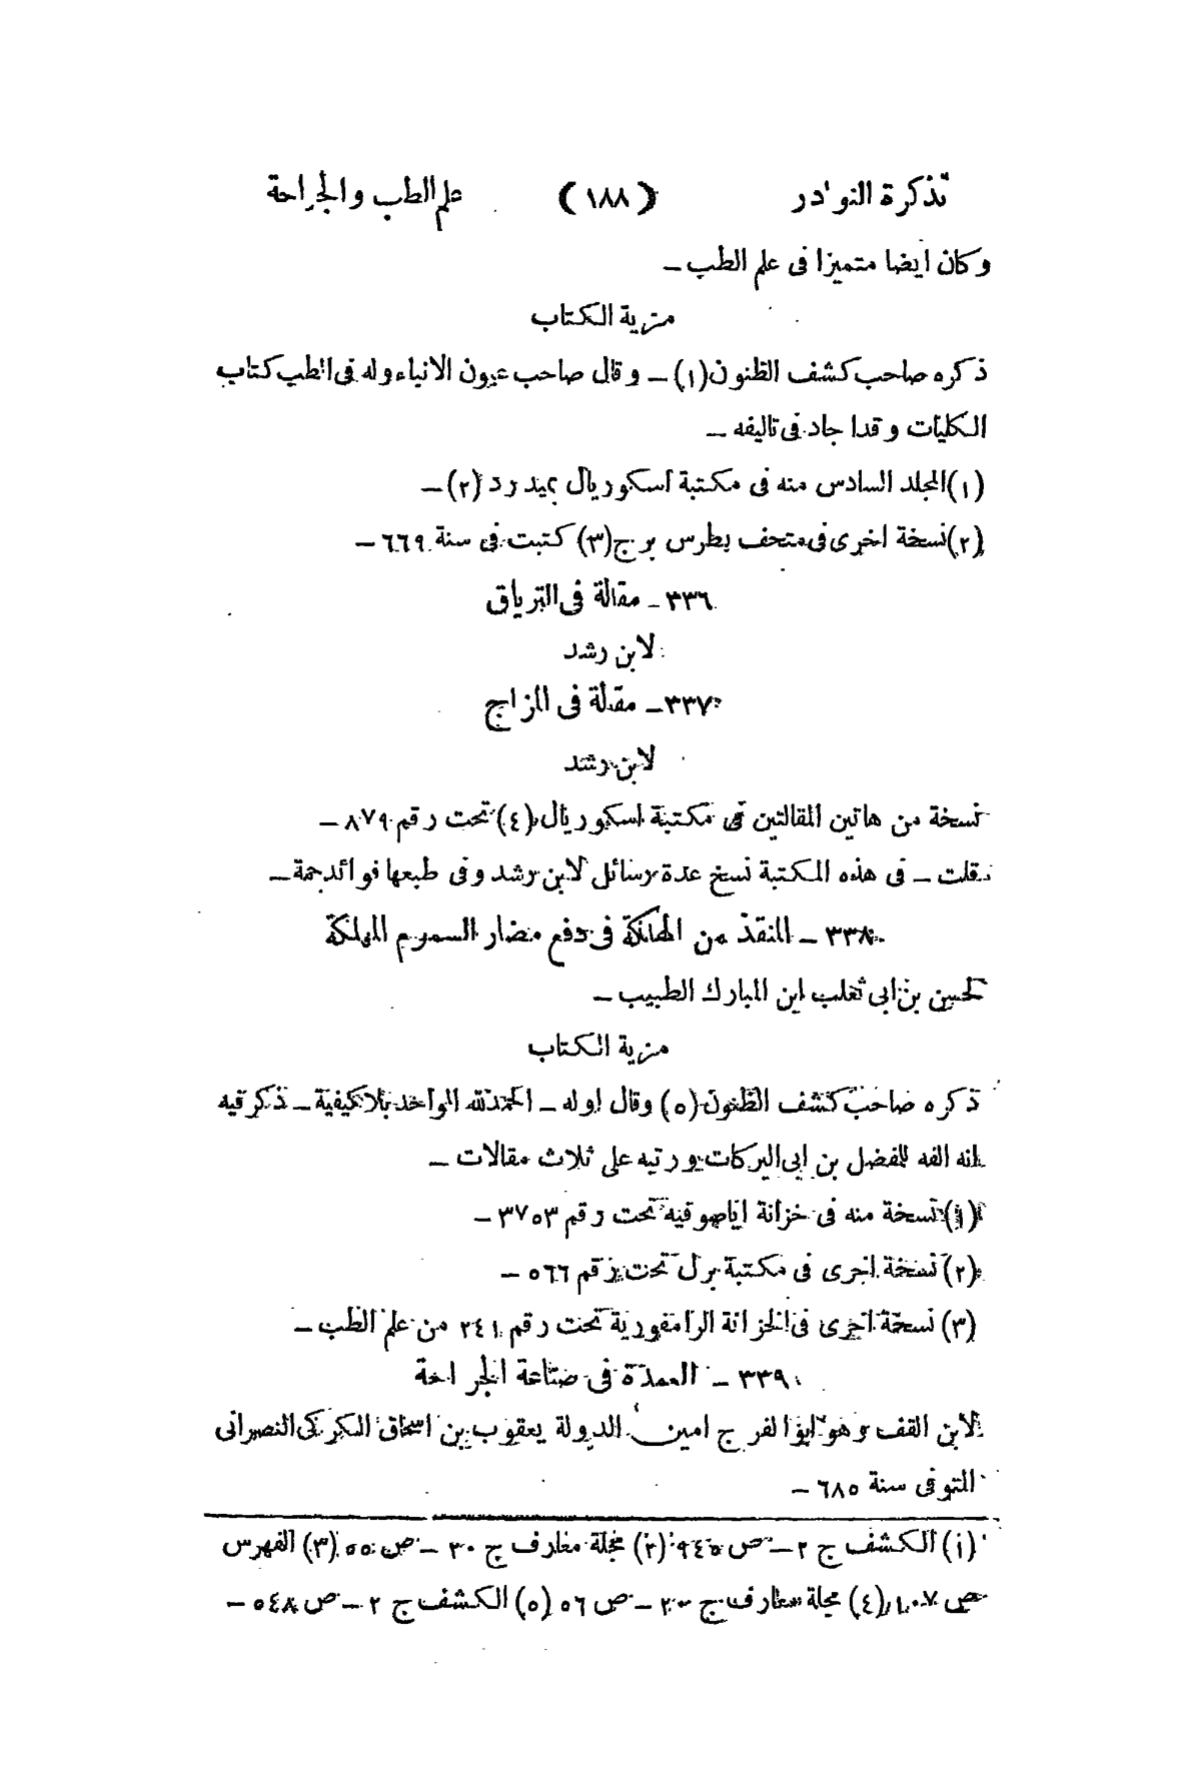 تذكرة النوادر (١٨٨) علم الطب والجراحة
وكان ايضا متميزا فى علم الطب –
مزية الكتاب
ذكره صاحب كشف الظنون (١) – وقال صاحب عيون الانباء وله فى الطب كتاب
الكليات وقد اجاد فى تاليفه –
(١) المجلد السادس منه فى مكتبة اسكوريال بميدرد (٢) –
(٢) نسخة اخرى فى متحف بطرس برج (٣) كتبت فى سنة ٦٦٩ –
٣٣٦ – مقالة فى الترياق
لابن رشد
٣٣٧ – مقالة فى المزاج
لابن رشد
نسخة من هاتين المقالتين فى مكتبة اسكوريال (٤) تحت رقم ٨٧٩ –
قلت – فى هذه المكتبة نسخ عدة رسائل لابن رشد وفى طبعها فوائد جمة –
٣٣٨ – المنقذ من الهلكة فى دفع مضار السموم المهلكة
لحسين بن ابى ثعلب ابن المبارك الطبيب –
مزية الكتاب
ذكره صاحب كشف الظنون (٥) وقال اوله – الحمد لله الواحد بلا كيفية – ذكر فيه
انه الفه للفضل بن ابى البركات ورتبه على ثلاث مقالات –
(١) نسخة منه فى خزانة اياصوفيه تحت رقم ٣٧٥٣ –
(٢) نسخة اخرى فى مكتبة برل تحت رقم ٥٦٦ –
(٣) نسخة اخرى فى الخزانة الرامفورية تحت رقم ٢٤١ من علم الطب –
٣٣٩ – العمدة فى صناعة الجراحة
لابن القف وهو ابو الفرج امين الدولة يعقوب بن اسحاق الكركى النصرانى
المتوفى سنة ٦٨٥ –
(١) الكشف ج ٢ – ص ٩٤٥ (٢) مجلة معارف ج ٣٠ – ص ٥٥ (٣) الفهرس
ص ١٠٧ (٤) مجلة معارف ج – ص ٥٦ (٥) الكشف ج ٢ – ص ٥٤٨ –